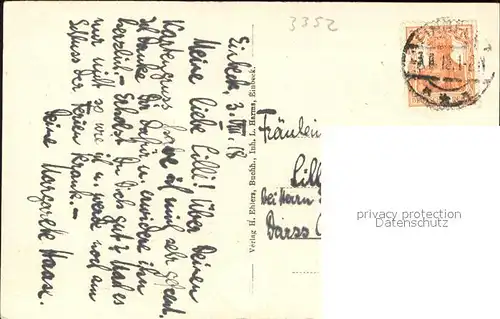 3352
Einbeck, 3. VIII. 18
Meine liebe Lilli! Über Deinen
Kartengruss habe ich mich sehr gefreut.
Ich danke Dir dafür u. erwidre ihn
herzlich. Geht es
mir nicht so, wie ich u. werde noch am
Schluss der Ferien krank. –
Deine Margarete Haase.
Verlag H. Ehlers, Buchh., Inh. L. Harms, Einbeck.
Fräulein
Lill
bei Herrn
Darss
privacy protection
Datenschutz